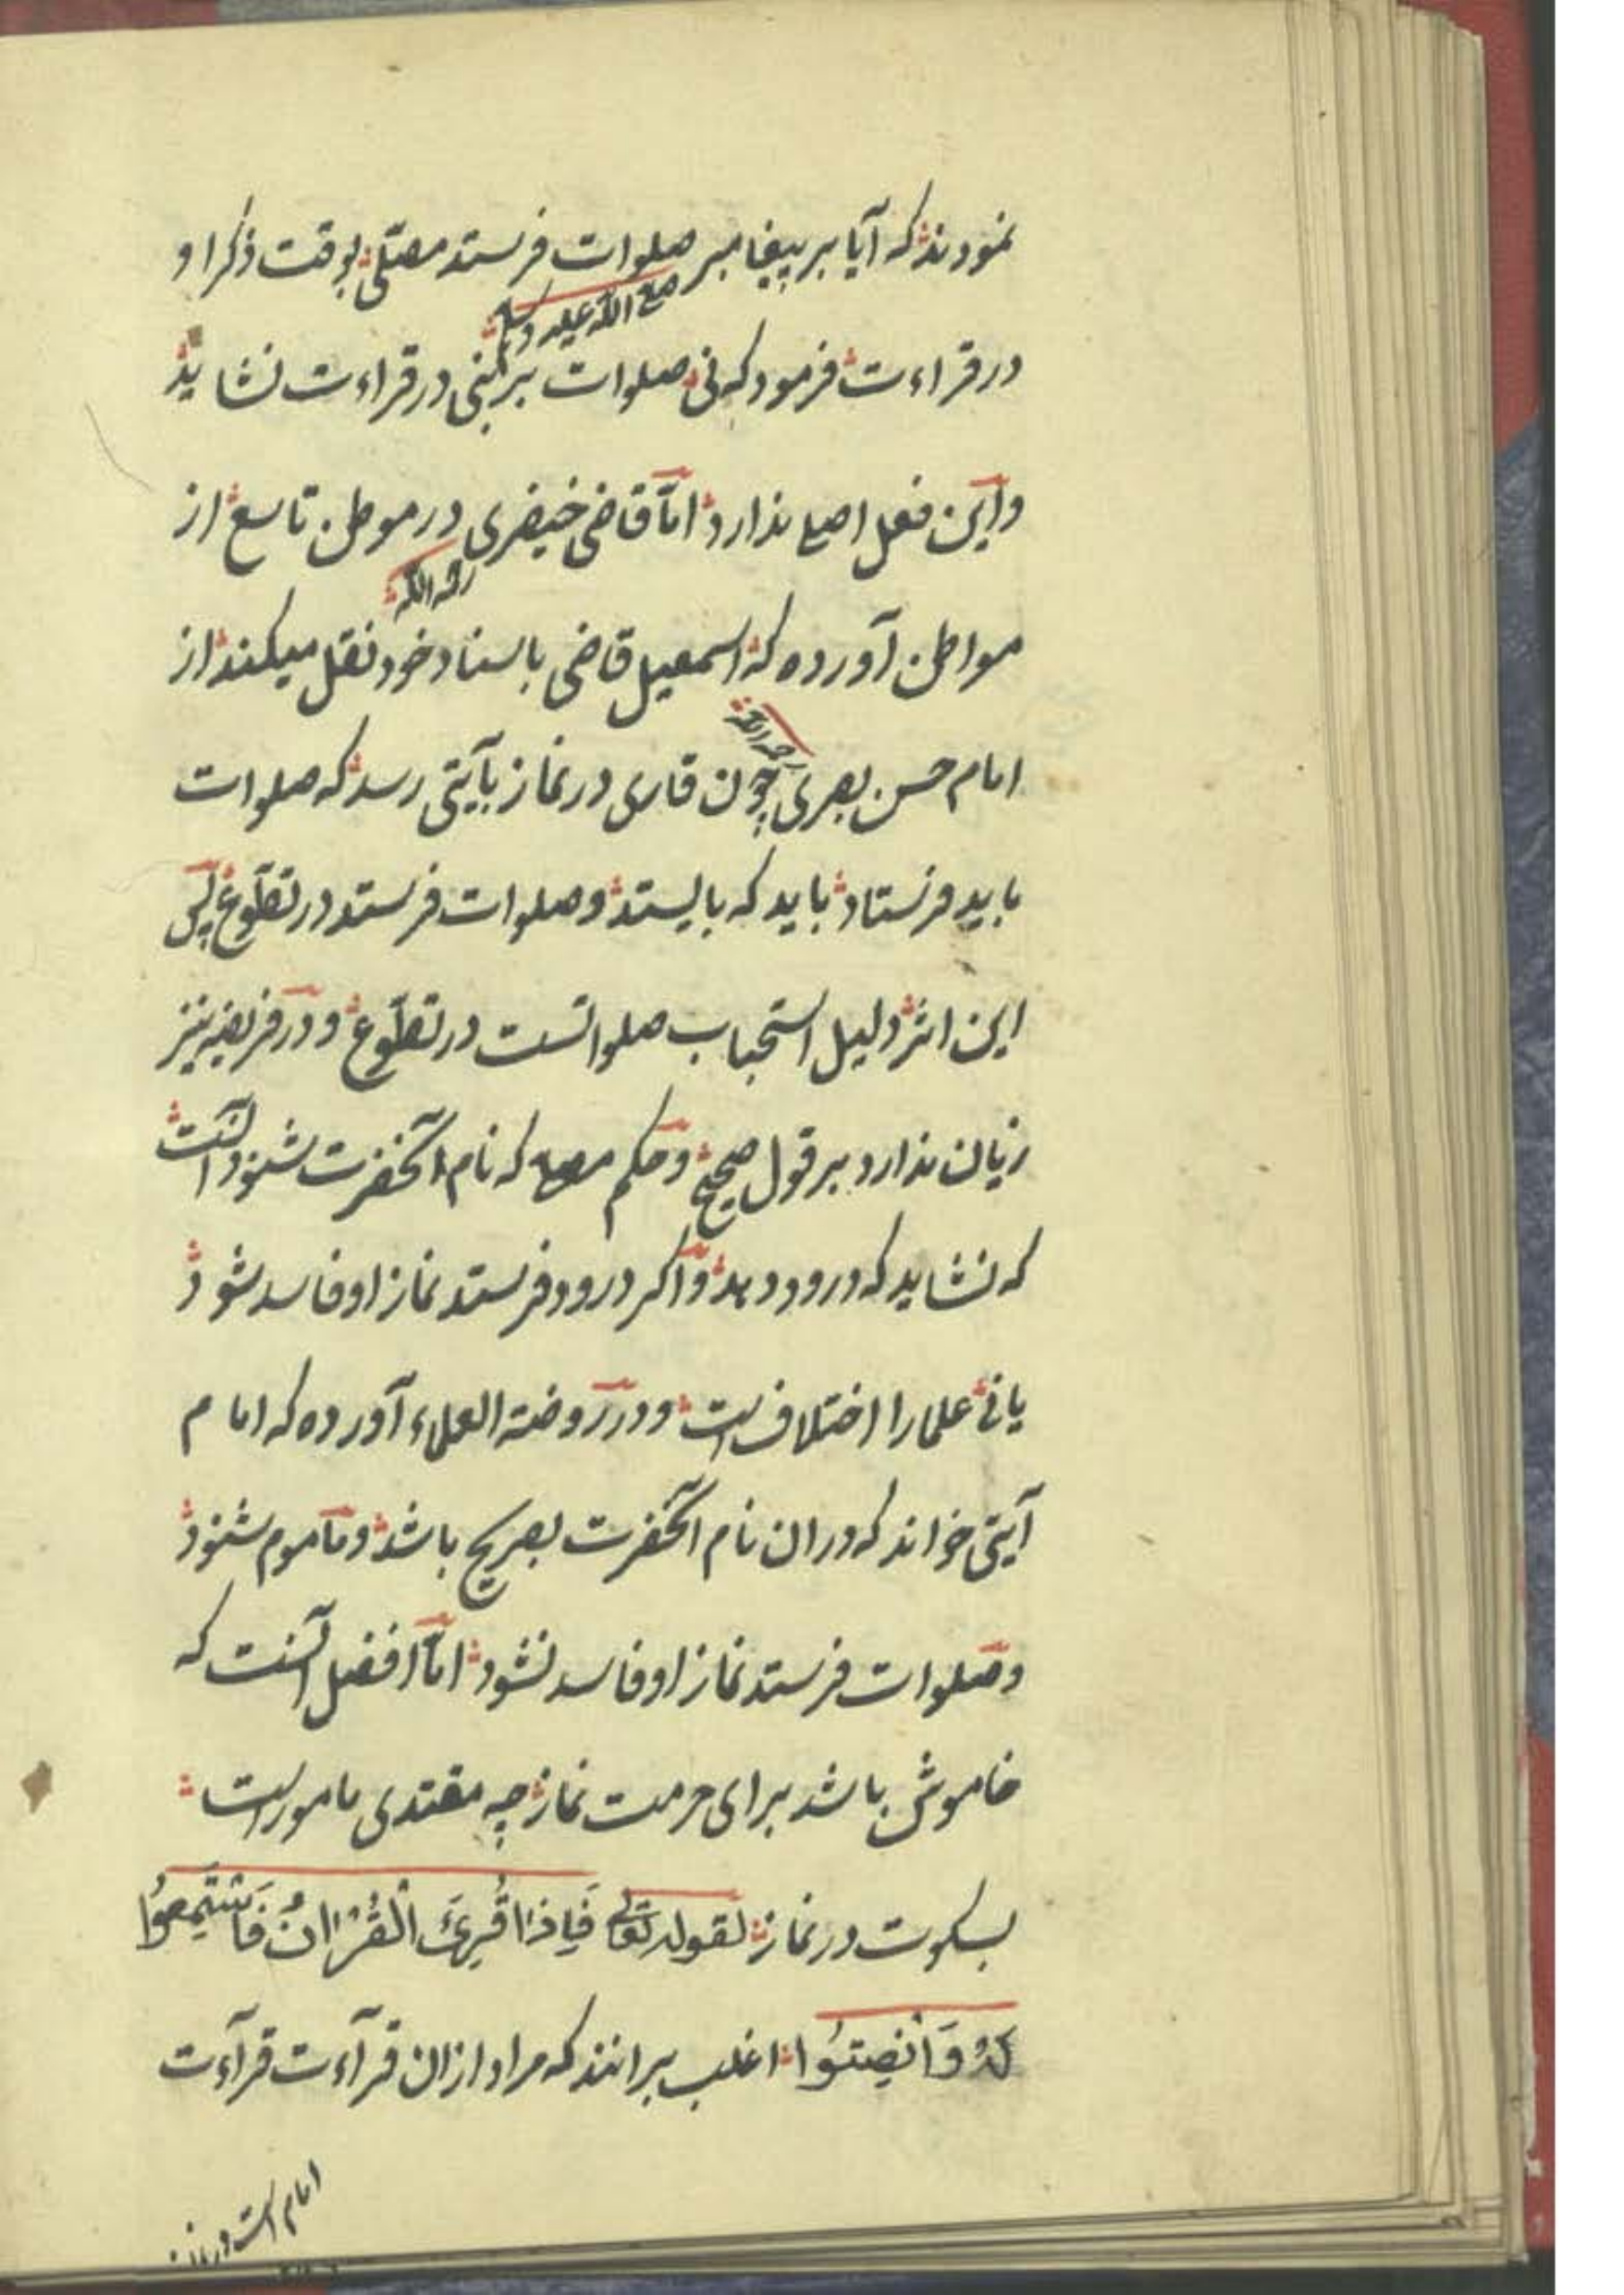 نمودند که آیا بر پیغامبر صلوات فرستد مصلّی بوقت ذکر او
صلی الله علیه وسلم
در قراءت فرمود که نی صلوات بر نبی در قراءت نشاید
واین فعل اصلی ندارد امّا قاضی خیضری در موطن تاسع از
رحمه الله
مواطن آورده که اسمعیل قاضی باسناد خود نقل میکند از
رحمه الله
امام حسن بصری چون قاری در نماز بآیتی رسد که صلوات
باید فرستاد باید که بایستد و صلوات فرستد در تطوّع پس
این اثر دلیل استحباب صلواتست در تطوّع و در فریضه نیز
زیان ندارد بر قول صحیح و حکم مصلی که نام آنحضرت شنود آنست
که نشاید که درود دهد و اکر درود فرستد نماز او فاسد شود
یا نی علما را اختلاف است و در روضة العلماء آورده که امام
آیتی خواند که دران نام آنحضرت بصریح باشد و مأموم شنود
و صلوات فرستد نماز او فاسد نشود امّا افضل آنست که
خاموش باشد برای حرمت نماز چه مقتدی مامور است
بسکوت در نماز لقوله تعالی فَاِذَا قُرِئَ الْقُرْاٰنُ فَاسْتَمِعُوا
لَهُ وَاَنْصِتُوا اغلب برانند که مراد ازان قرآءت قرآءت
امام است در نماز